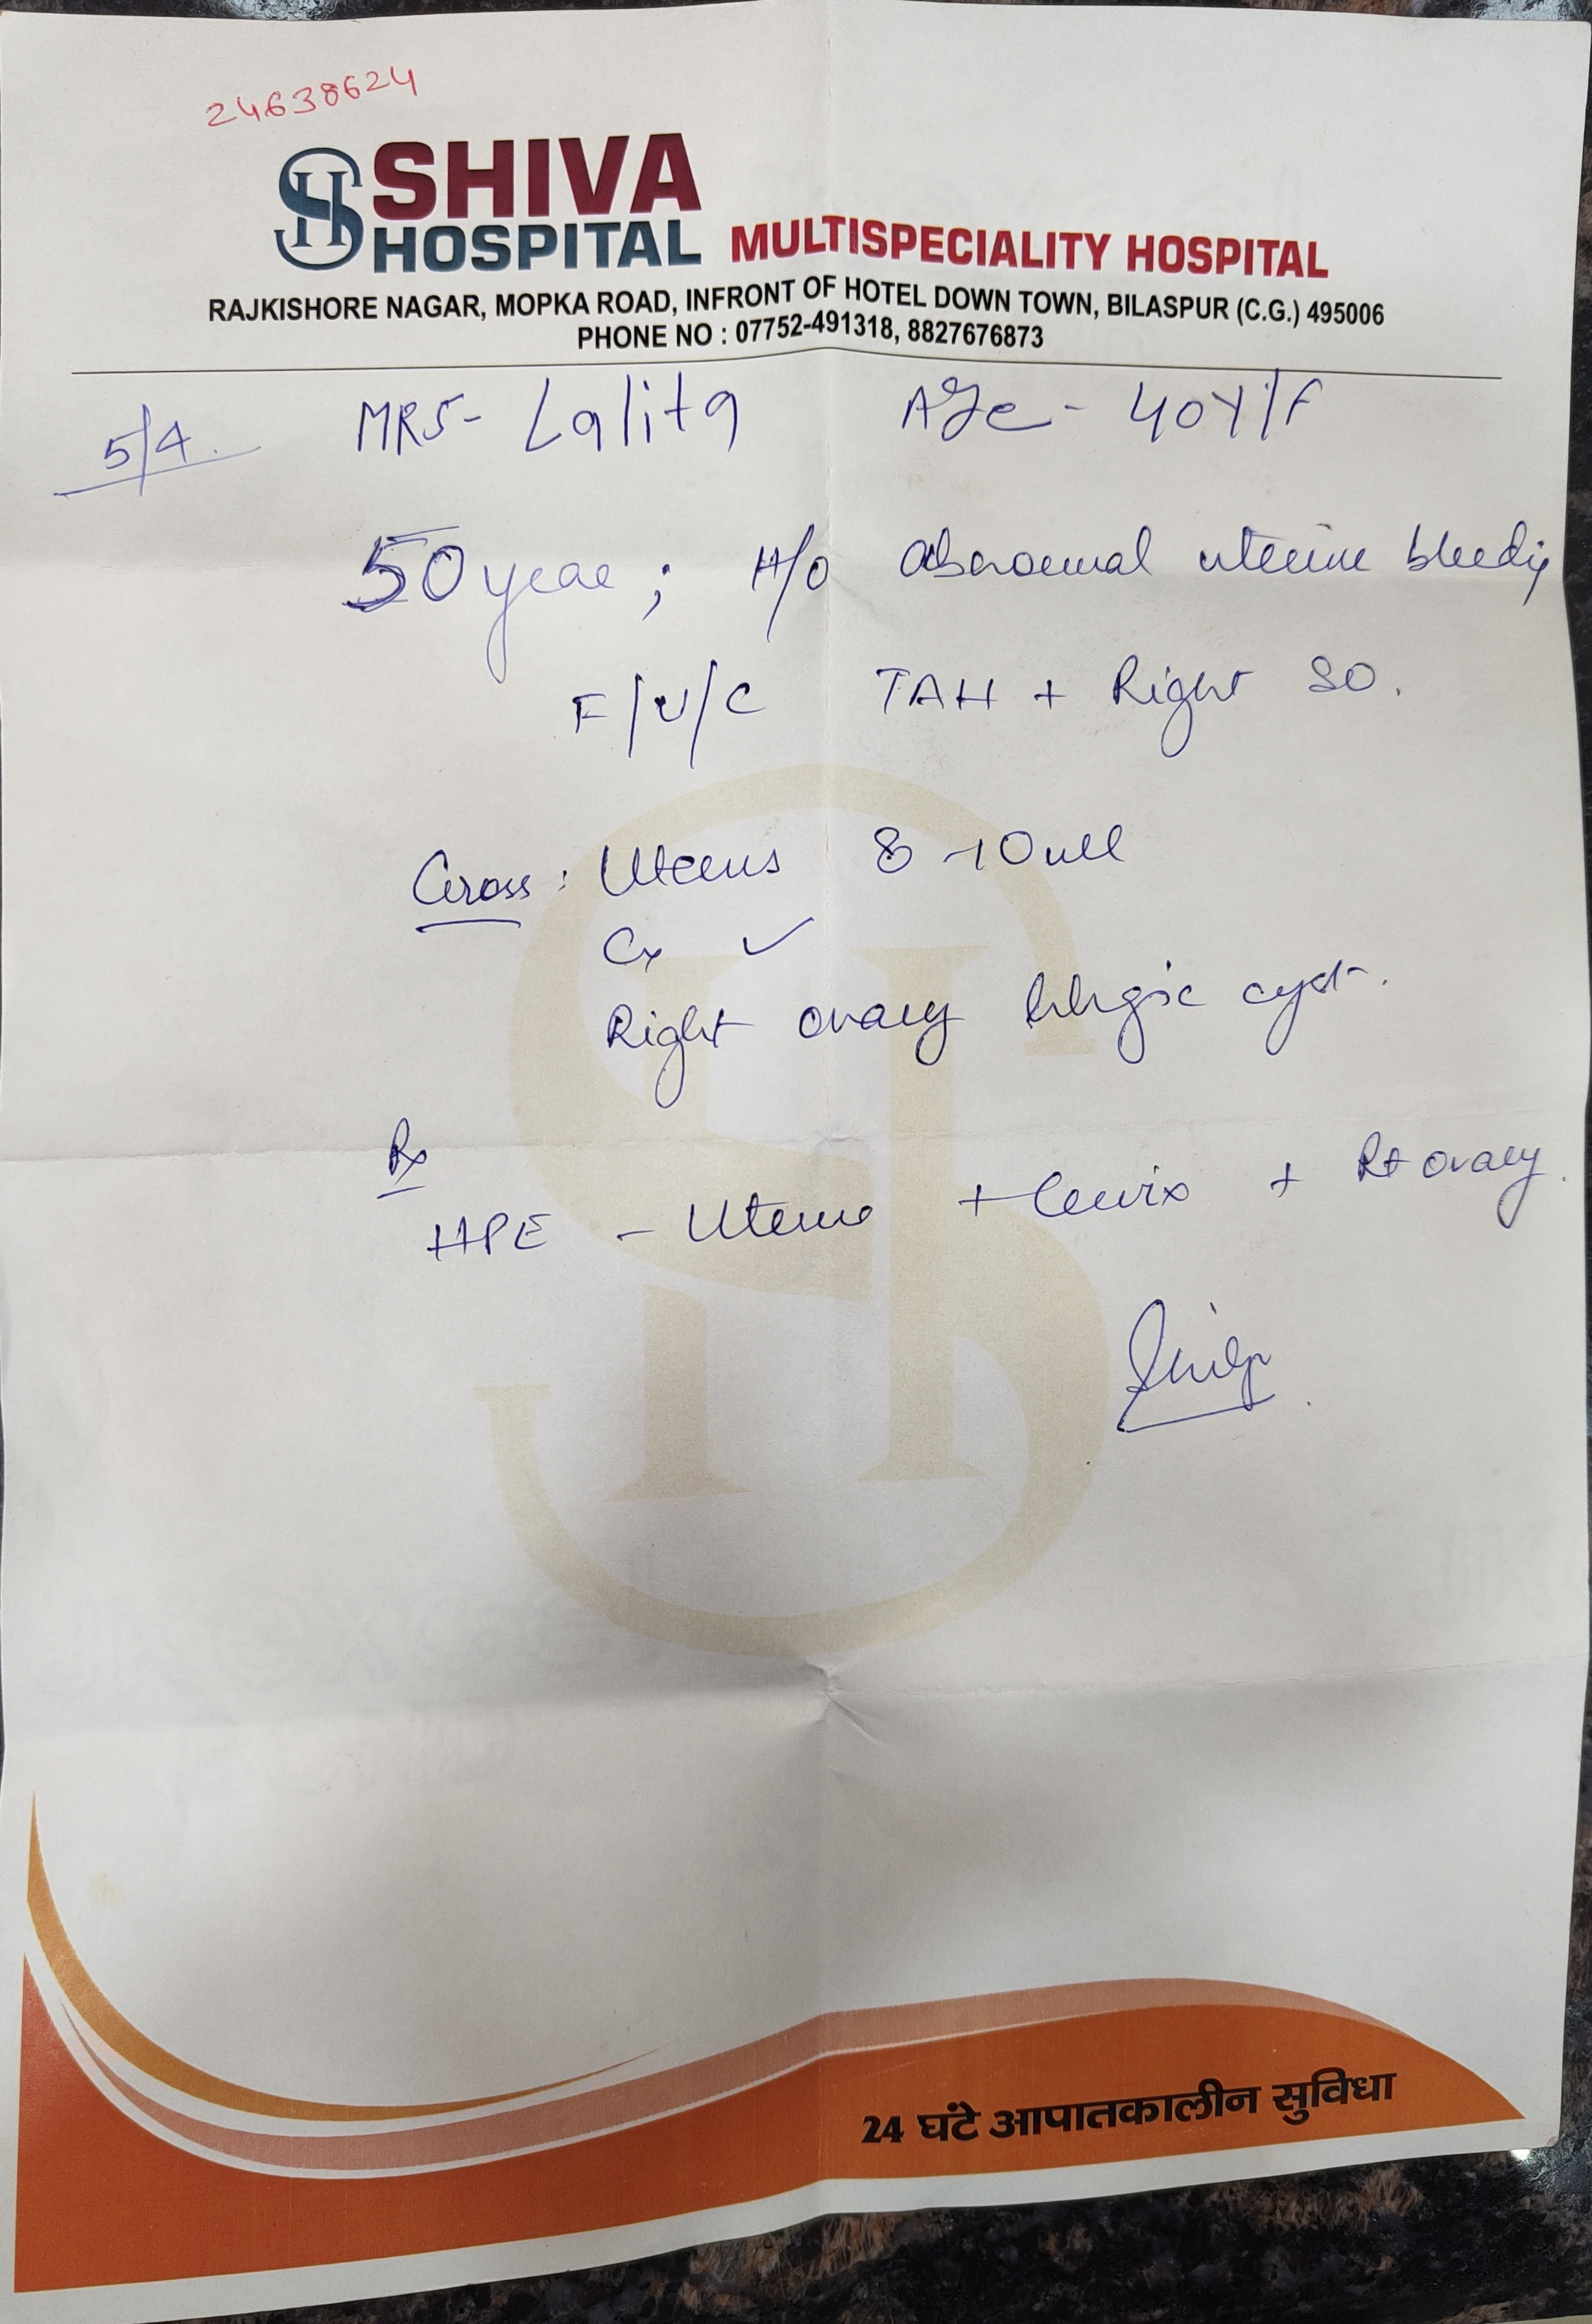 24638624
SHIVA
HOSPITAL MULTISPECIALITY HOSPITAL
RAJKISHORE NAGAR, MOPKA ROAD, INFRONT OF HOTEL DOWN TOWN, BILASPUR (C.G.) 495006
PHONE NO : 07752-491318, 8827676873
5/4. MRS- Lalita Age- 40Y/F
50 year ; H/O abnormal uterine bleeding
F/U/C TAH + Right SO.
Gross : Uterus 8-10
Cx ✓
Right ovary cyst.
Rx
HPE - Uterus + Cervix + Rt ovary.
24 घंटे आपातकालीन सुविधा